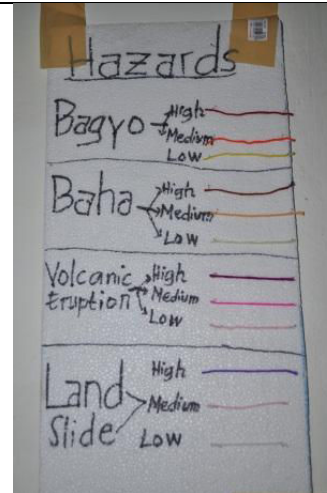 Hazards
Bagyo High
Medium
Low
Baha High
Medium
Low
Volcanic High
Eruption Medium
Low
Land High
Slide Medium
Low